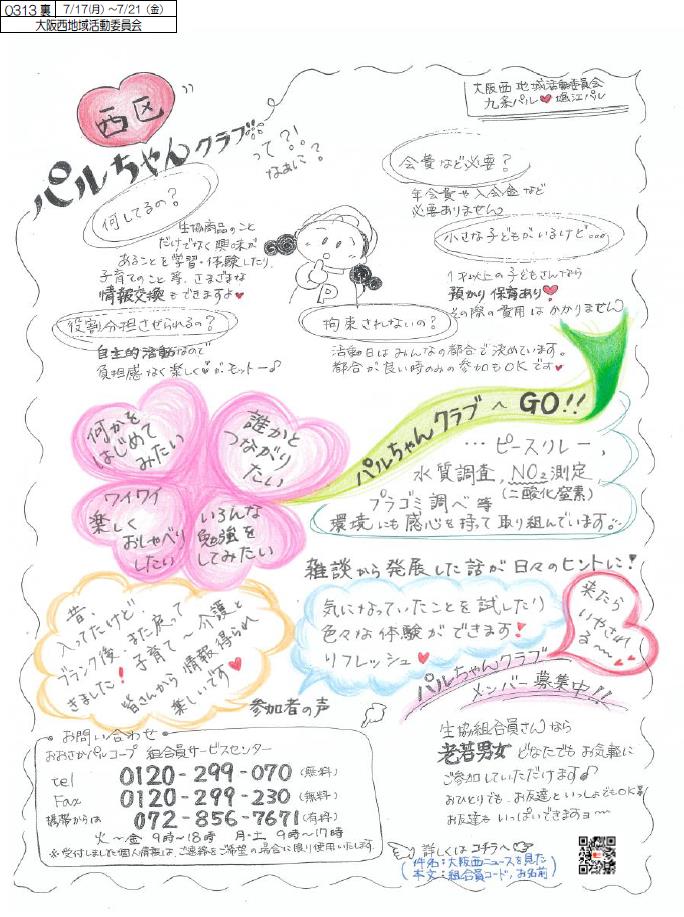 0313 裏 7/17(月)~7/21(金)
大阪西地域活動委員会
大阪西地域活動委員会
九条パル♥堀江パル
西区
パルちゃんクラブ
って?!
なぁに?
何してるの?
生協商品のこと
だけでなく興味が
あることを学習・体験したり
子育てのこと等、さまざまな
情報交換もできますよ♥
会費など必要?
年会費や入会金など
必要ありません
小さな子どもがいるけど…
1才以上の子どもさんなら
預かり保育あり♥
その際の費用はかかりません
P
役割分担させられるの?
自主的活動なので
負担感なく楽しく♥がモットー♪
拘束されないの?
活動日はみんなの都合で決めています。
都合が良い時のみの参加もOKです♥
パルちゃんクラブへGO!!
何かを
はじめて
みたい
誰かと
つながり
たい
ワイワイ
楽しく
おしゃべり
したい
いろんな
勉強を
してみたい
…ピースリレー、
水質調査、NO₂測定、
(二酸化窒素)
プラゴミ調べ等
環境にも感心を持って取り組んでいます。
雑談から発展した話が日々のヒントに!
昔、
入ってたけど、
ブランク後、また戻って
きました!子育て~介護と
皆さんから情報得られ
楽しいです♥
気になっていたことを試したり
色々な体験ができます!
リフレッシュ♥
来たら
いやされ
る~
参加者の声
パルちゃんクラブ
メンバー募集中!!
生協組合員さんなら
老若男女どなたでもお気軽に
ご参加していただけます♪
おひとりでも、お友達といっしょでもOK!
お友達もいっぱいできますョ~
お問い合わせ
おおさかパルコープ 組合員サービスセンター
tel 0120-299-070(無料)
Fax 0120-299-230(無料)
携帯からは 072-856-7671(有料)
火~金 9時~18時 月・土 9時~17時
※受付しました個人情報は、ご連絡をご希望の場合に限り使用いたします。
詳しくはコチラへ
(件名:大阪西ニュースを見た
本文:組合員コード、お名前)